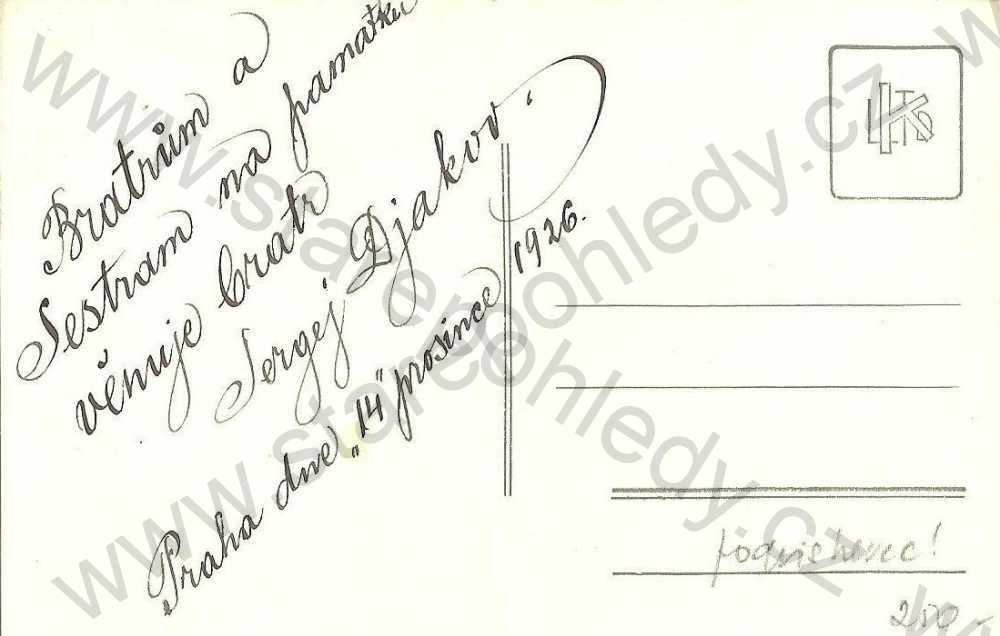 Bratrům a
Sestram na památku
věnuje bratr
Sergej Djakov.
Praha dne „14" prosince 1926.
200 -
www.starepohledy.cz
www.starepohledy.cz